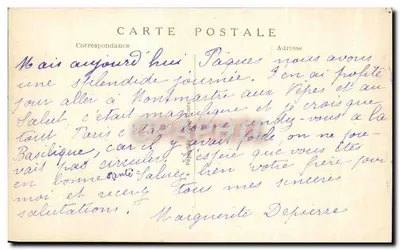 CARTE POSTALE
Correspondance
Adresse
Mais aujourd'hui Pâques nous avons
une splendide journée. J'en ai profité
pour aller à Montmartre aux Vêpres et au
Salut, c'était magnifique et je crois que
tout Paris s'était rendez-vous à la
Basilique, car il y avait foule on ne pou-
vait pas circuler. J'espère que vous êtes
en bonne santé Saluez bien votre frère pour
moi et recevez tous mes sincères
salutations.
Marguerite Depierre